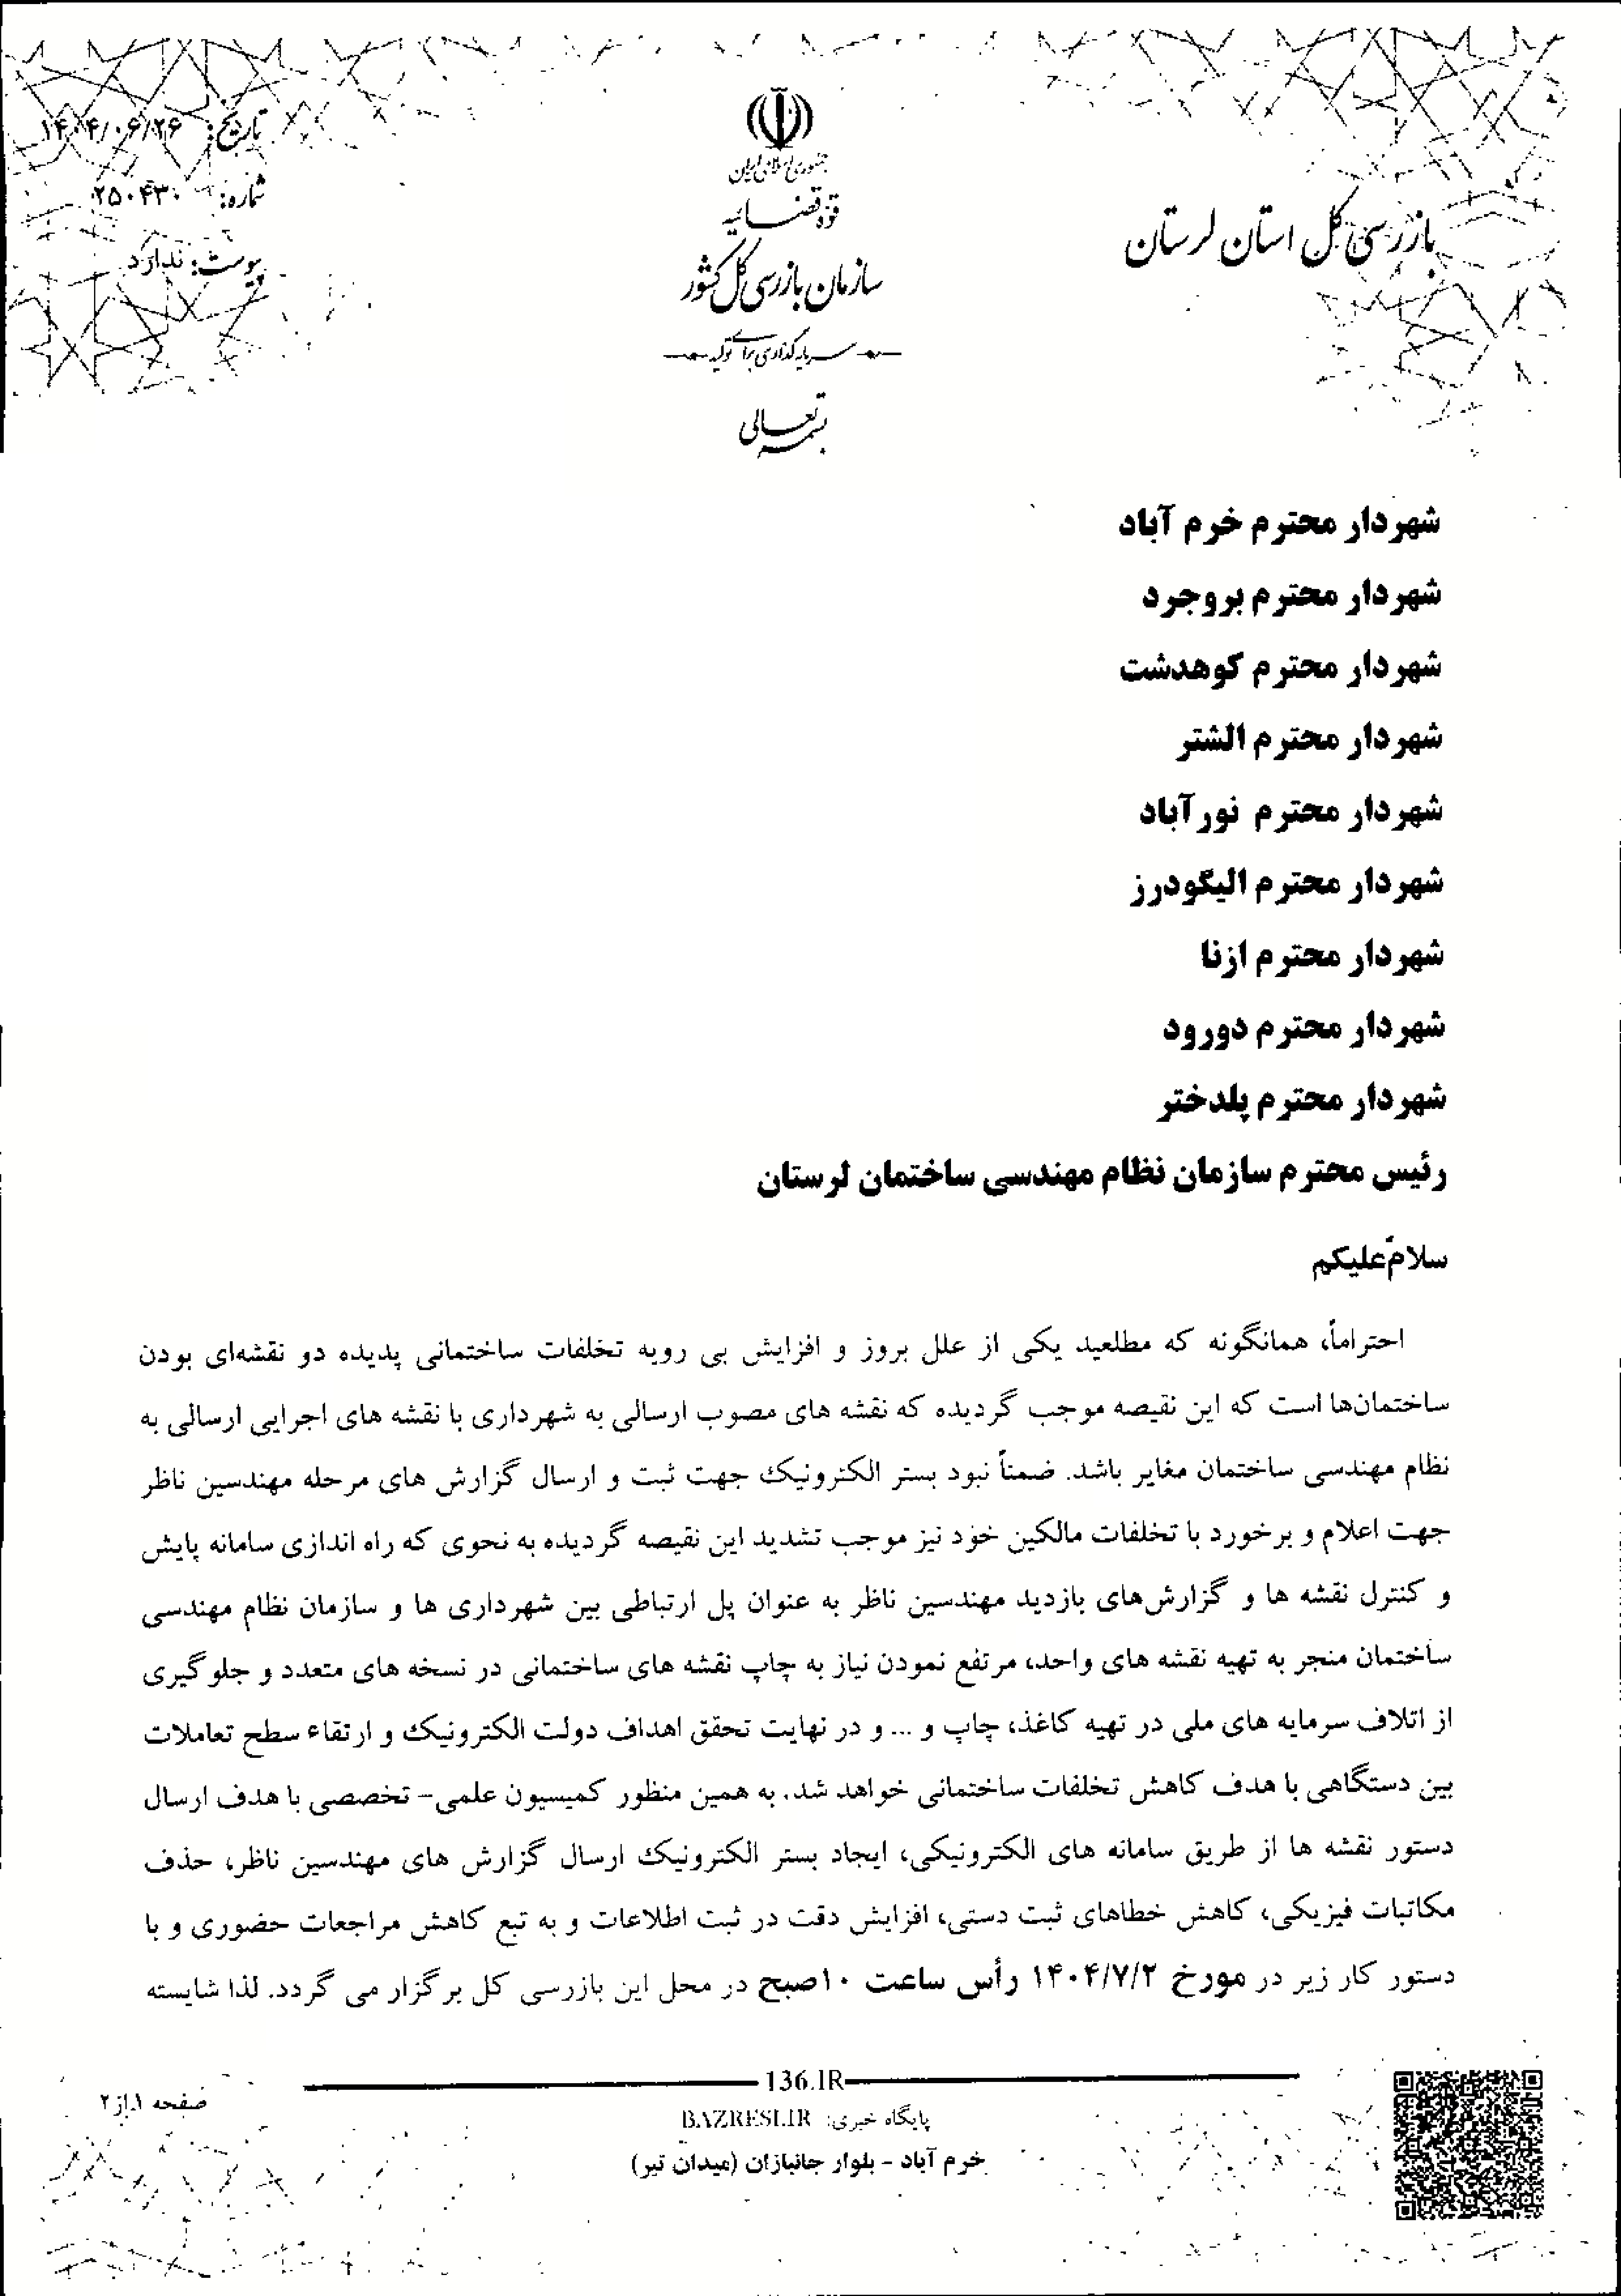 تاریخ: ۱۴۰۴/۰۶/۲۶
شماره: ۲۵۰۴۳۰
پیوست: ندارد
جمهوری اسلامی ایران
قوه قضائیه
سازمان بازرسی کل کشور
سرمایه گذاری برای تولید
بسمه تعالی
بازرسی کل استان لرستان
شهردار محترم خرم آباد
شهردار محترم بروجرد
شهردار محترم کوهدشت
شهردار محترم الشتر
شهردار محترم نورآباد
شهردار محترم الیگودرز
شهردار محترم ازنا
شهردار محترم دورود
شهردار محترم پلدختر
رئیس محترم سازمان نظام مهندسی ساختمان لرستان
سلام‌ٌعلیکم
احتراماً، همانگونه که مطلعید یکی از علل بروز و افزایش بی رویه تخلفات ساختمانی پدیده دو نقشه‌ای بودن
ساختمان‌ها است که این نقیصه موجب گردیده که نقشه های مصوب ارسالی به شهرداری با نقشه های اجرایی ارسالی به
نظام مهندسی ساختمان مغایر باشد. ضمناً نبود بستر الکترونیک جهت ثبت و ارسال گزارش های مرحله مهندسین ناظر
جهت اعلام و برخورد با تخلفات مالکین خود نیز موجب تشدید این نقیصه گردیده به نحوی که راه اندازی سامانه پایش
و کنترل نقشه ها و گزارش‌های بازدید مهندسین ناظر به عنوان پل ارتباطی بین شهرداری ها و سازمان نظام مهندسی
ساختمان منجر به تهیه نقشه های واحد، مرتفع نمودن نیاز به چاپ نقشه های ساختمانی در نسخه های متعدد و جلوگیری
از اتلاف سرمایه های ملی در تهیه کاغذ، چاپ و ... و در نهایت تحقق اهداف دولت الکترونیک و ارتقاء سطح تعاملات
بین دستگاهی با هدف کاهش تخلفات ساختمانی خواهد شد. به همین منظور کمیسیون علمی- تخصصی با هدف ارسال
دستور نقشه ها از طریق سامانه های الکترونیکی، ایجاد بستر الکترونیک ارسال گزارش های مهندسین ناظر، حذف
مکاتبات فیزیکی، کاهش خطاهای ثبت دستی، افزایش دقت در ثبت اطلاعات و به تبع کاهش مراجعات حضوری و با
دستور کار زیر در مورخ ۱۴۰۴/۷/۲ رأس ساعت ۱۰صبح در محل این بازرسی کل برگزار می گردد. لذا شایسته
136.IR
پایگاه خبری: BAZRESI.IR
خرم آباد - بلوار جانبازان (میدان تیر)
صفحه ۱ از ۲